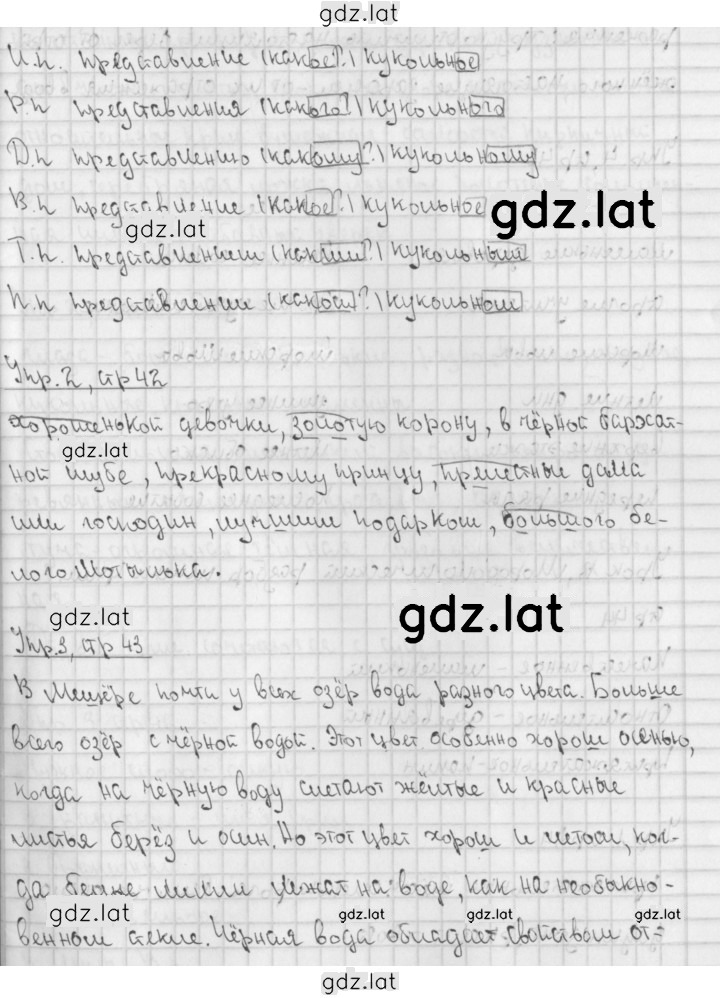 gdz.lat
И.п. представление (какое?) кукольное
Р.п представления (какого?) кукольного
Д.п представлению (какому?) кукольному
В.п представление (какое?) кукольное
gdz.lat
gdz.lat
Т.п. представлением (каким?) кукольным
П.п представлении (каком?) кукольном
Упр.2, стр 42
хорошенькой девочки, золотую корону, в чёрной бархат-
gdz.lat
ной шубе, прекрасному принцу, прелестные дама
или господин, лучшим подарком, большого бе-
лого мотылька.
gdz.lat
gdz.lat
Упр.3, стр 43
В Мещёре почти у всех озёр вода разного цвета. Больше
всего озёр с чёрной водой. Этот цвет особенно хорош осенью,
когда на чёрную воду слетают жёлтые и красные
листья берёз и осин. Но этот цвет хорош и летом, ког-
да белые лилии лежат на воде, как на необыкно-
gdz.lat
gdz.lat
gdz.lat
gdz.lat
венном стекле. Чёрная вода обладает свойством от-
gdz.lat